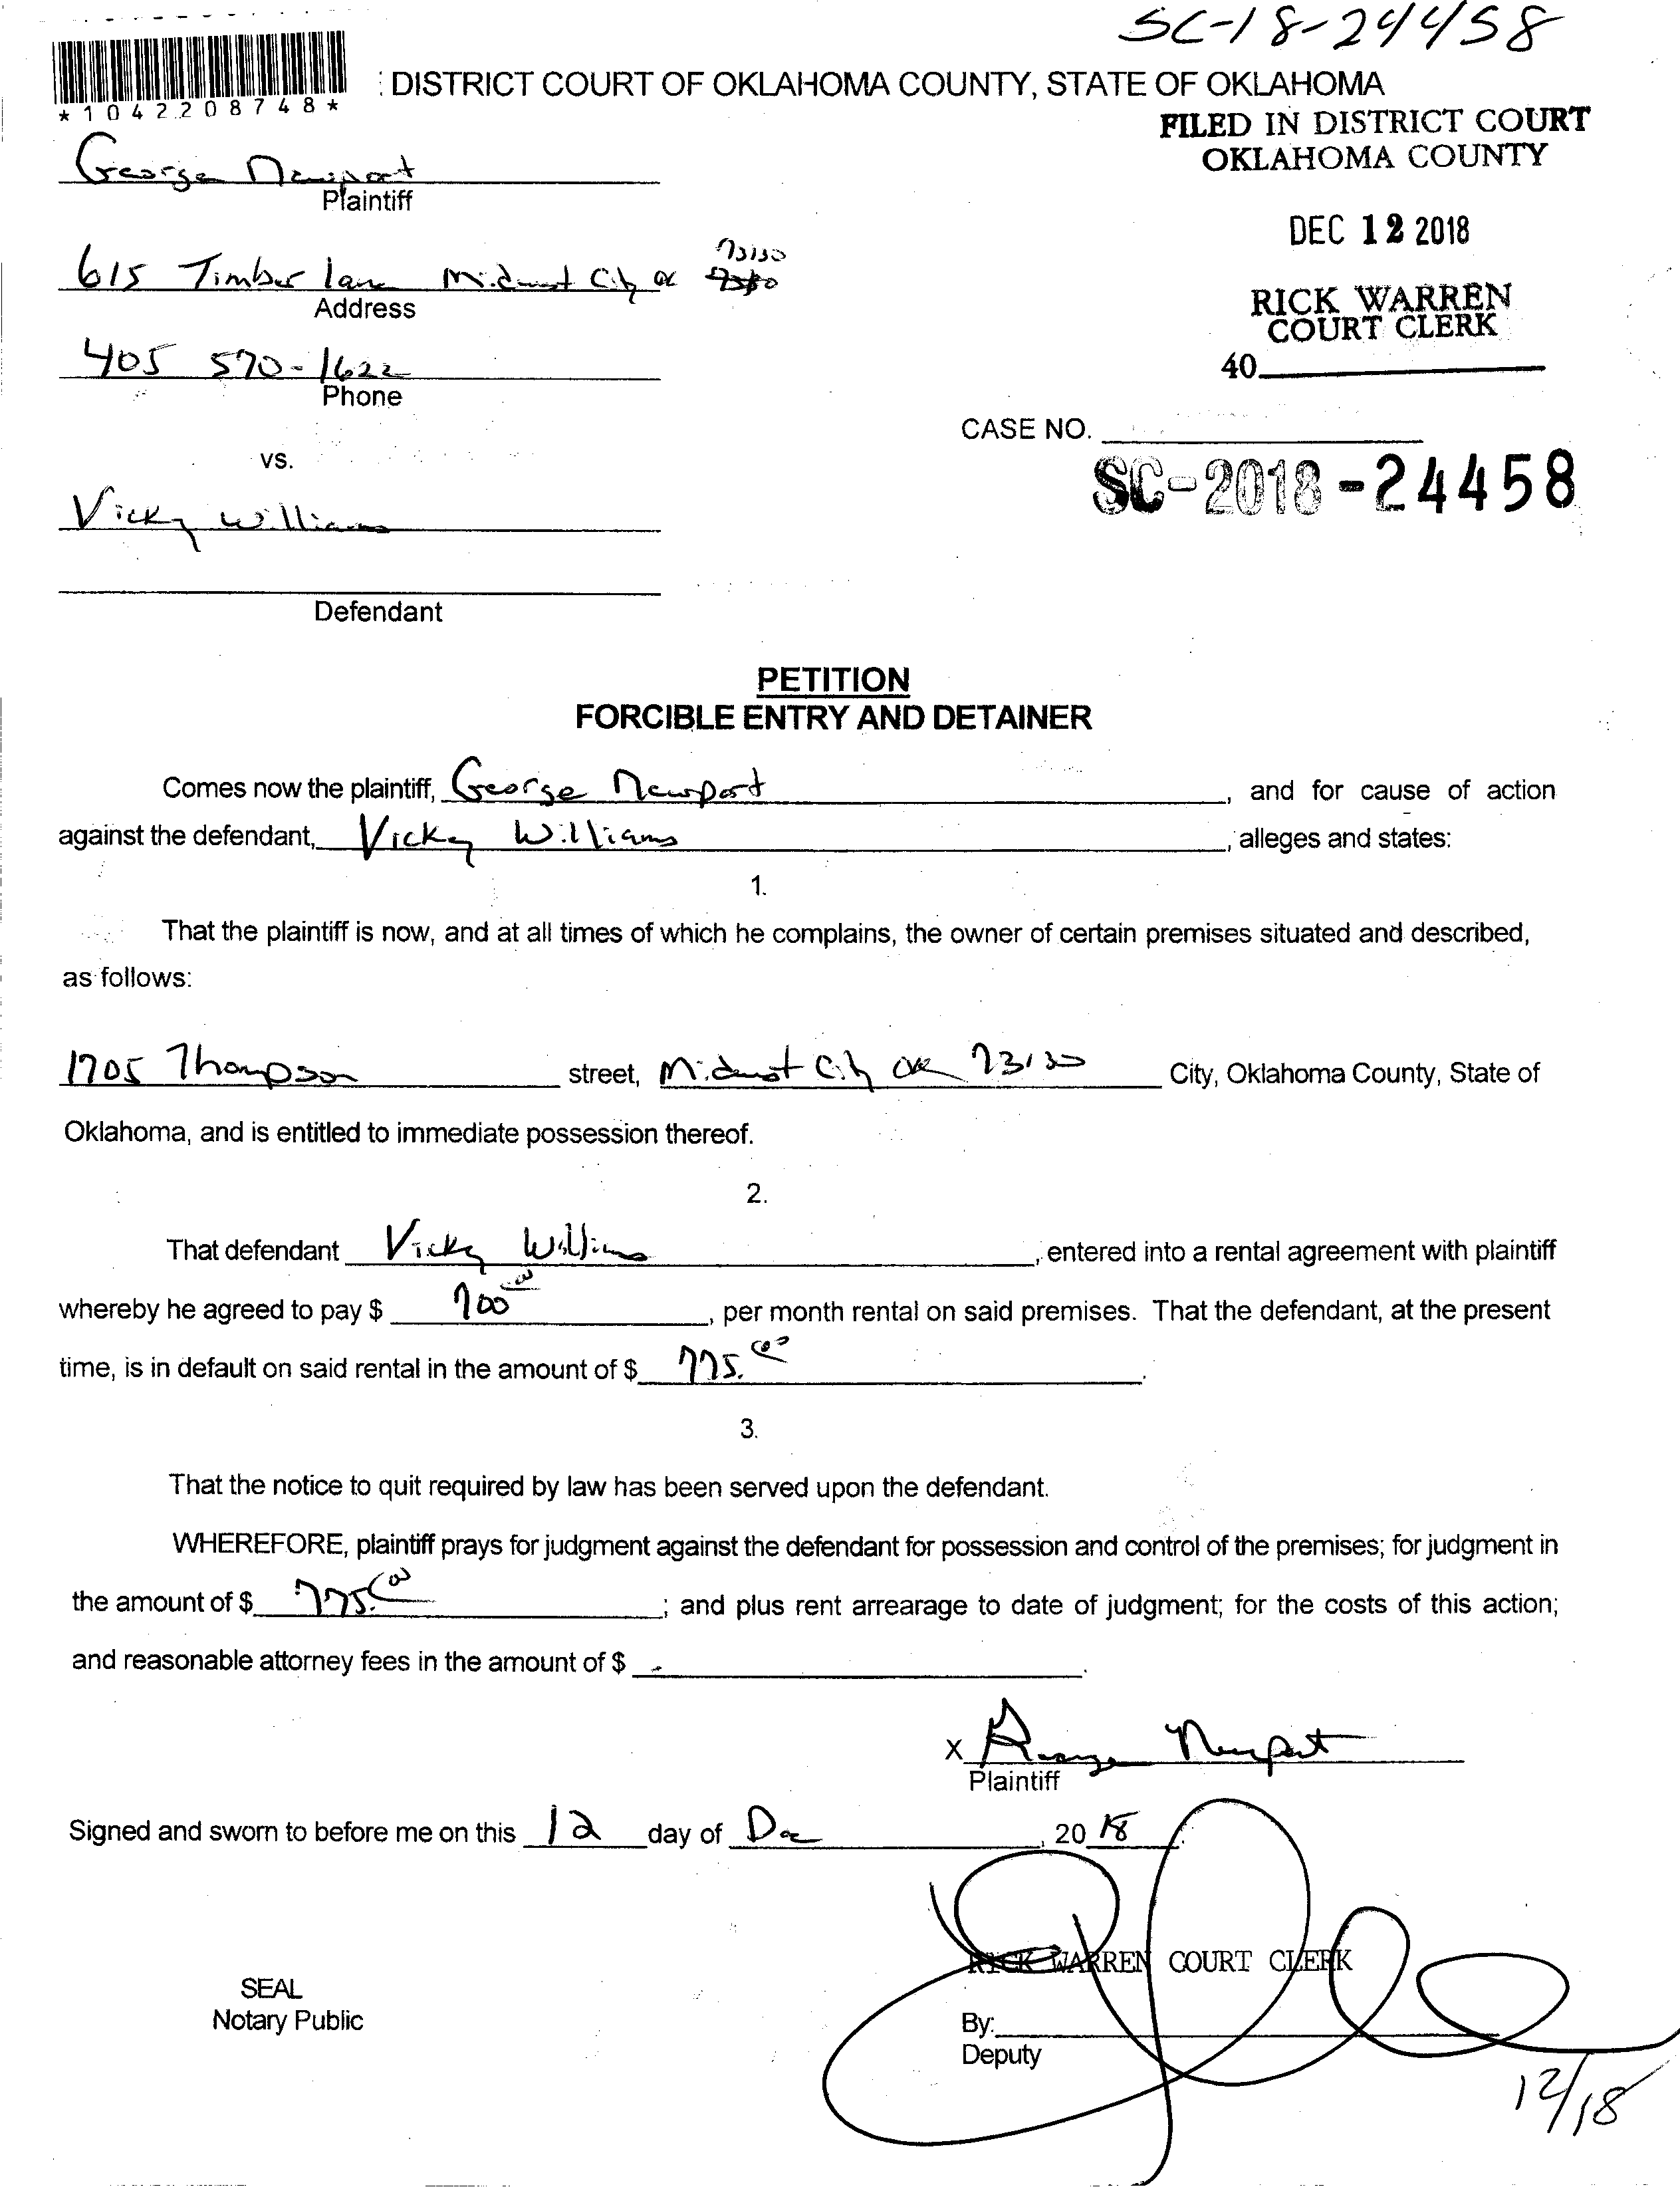 SC-18-24458
*1042208748*
: DISTRICT COURT OF OKLAHOMA COUNTY, STATE OF OKLAHOMA
FILED IN DISTRICT COURT
OKLAHOMA COUNTY
George Newport
Plaintiff
DEC 12 2018
73130
615 Timber lane Midwest City OK
Address
RICK WARREN
COURT CLERK
405 570-1622
Phone
40
CASE NO.
vs.
SC-2018-24458
Vicky Williams
Defendant
PETITION
FORCIBLE ENTRY AND DETAINER
Comes now the plaintiff, George Newport, and for cause of action
against the defendant, Vicky Williams, alleges and states:
1.
That the plaintiff is now, and at all times of which he complains, the owner of certain premises situated and described,
as follows:
1705 Thompson street, Midwest City OK 73130 City, Oklahoma County, State of
Oklahoma, and is entitled to immediate possession thereof.
2.
That defendant Vicky Williams, entered into a rental agreement with plaintiff
whereby he agreed to pay $ 700 00, per month rental on said premises. That the defendant, at the present
time, is in default on said rental in the amount of $ 775.00.
3.
That the notice to quit required by law has been served upon the defendant.
WHEREFORE, plaintiff prays for judgment against the defendant for possession and control of the premises; for judgment in
the amount of $ 775.00; and plus rent arrearage to date of judgment; for the costs of this action;
and reasonable attorney fees in the amount of $ - .
x George Newport
Plaintiff
Signed and sworn to before me on this 12 day of Dec, 20 18.
RICK WARREN COURT CLERK
SEAL
Notary Public
By:
Deputy
12/18